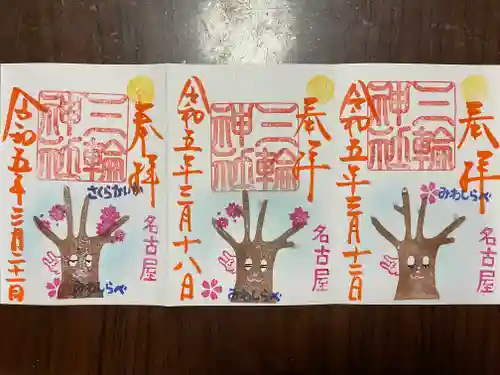 奉拝
三輪
神社
令和五年三月二十一日
みわしらべ
名古屋
奉拝
三輪
神社
令和五年三月十八日
みわしらべ
名古屋
奉拝
三輪
神社
令和五年三月十二日
みわしらべ
名古屋